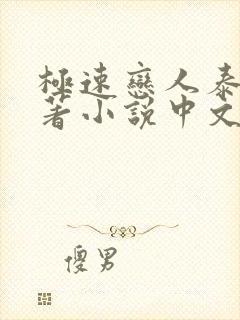 極速戀人泰
著小說中文
傻男